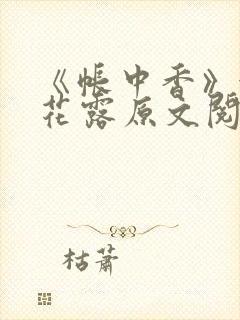 《帐中香》
花露原文阅
枯萧